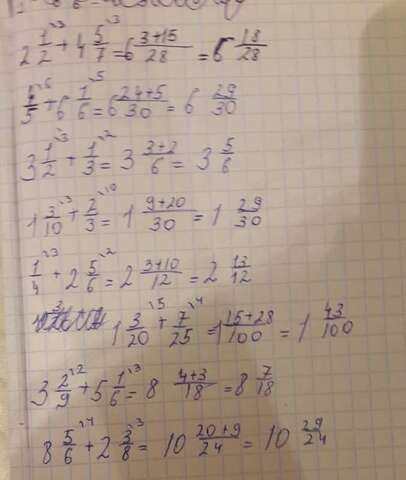 2 1/2 \3 + 4 5/7 \3 = 6 3+15/28 = 6 18/28
4/5 \6 + 6 1/6 \5 = 6 24+5/30 = 6 29/30
3 1/2 \3 + 1/3 \2 = 3 3+2/6 = 3 5/6
1 3/10 \3 + 2/3 \10 = 1 9+20/30 = 1 29/30
1/4 \3 + 2 5/6 \2 = 2 3+10/12 = 2 13/12
1 3/20 \5 + 7/25 \4 = 1 15+28/100 = 1 43/100
3 2/9 \2 + 5 1/6 \3 = 8 4+3/18 = 8 7/18
8 5/6 \4 + 2 3/8 \3 = 10 20+9/24 = 10 29/24